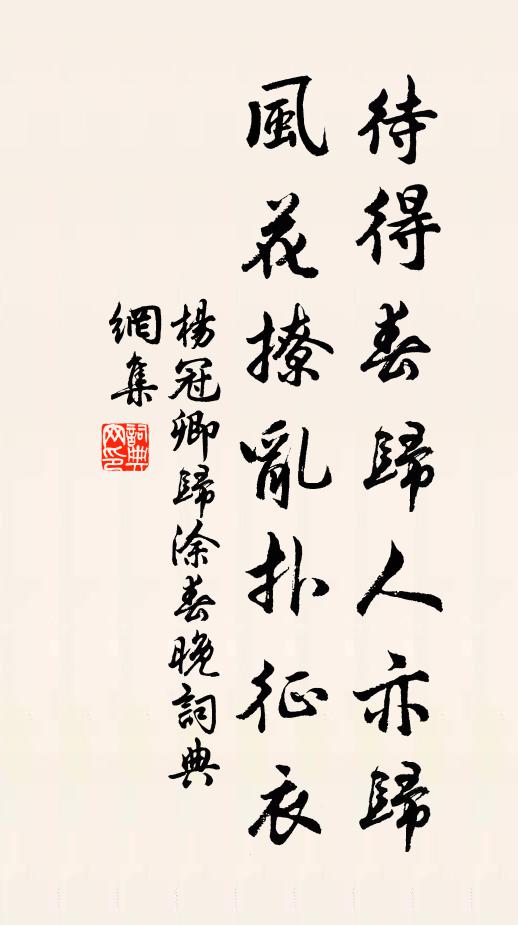 待得春歸人亦歸
風花撩亂扑征衣
楊冠卿歸涂春晚詞典
網集
詞典
网印